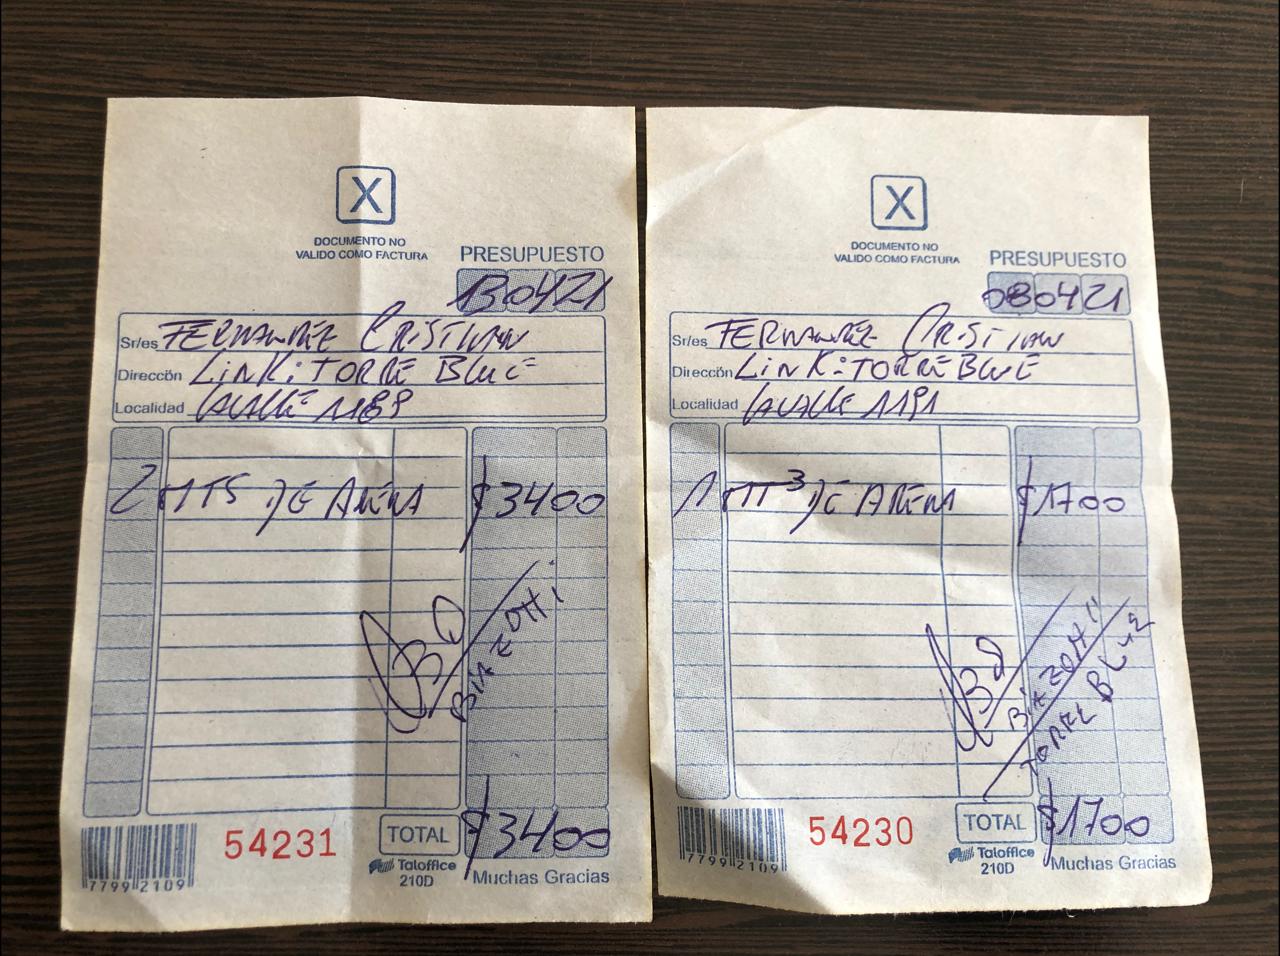 X
DOCUMENTO NO
VALIDO COMO FACTURA
PRESUPUESTO
130421
Sr/es FERNANDEZ CRISTIAN
Direccón LINK: TORRE BLUE
Localidad LAVALLE 1189
2 MTS DE ARENA $3400
BIAZOHI
TOTAL $3400
54231
7799 2109
Taloffice
210D
Muchas Gracias
X
DOCUMENTO NO
VALIDO COMO FACTURA
PRESUPUESTO
080421
Sr/es FERNANDEZ CRISTIAN
Direccón LINK: TORRE BLUE
Localidad LAVALLE 1191
1 MT³ DE ARENA $1700
TORRE BLUE
TOTAL $1700
54230
7799 2109
Taloffice
210D
Muchas Gracias